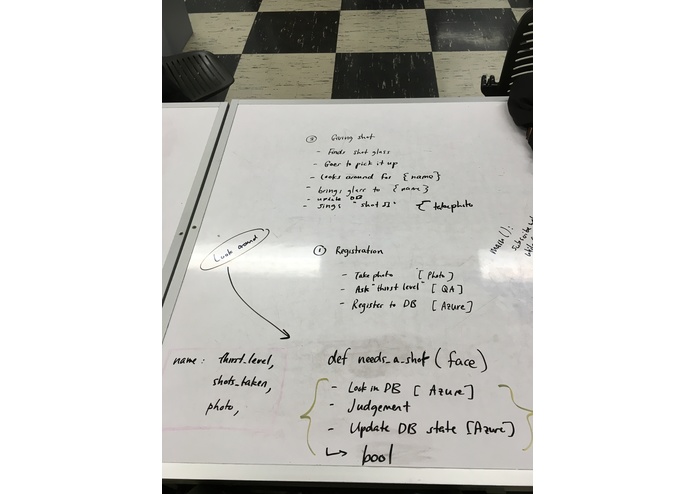 ② Giving shot
- Finds shot glass
- Goes to pick it up
- Looks around for {name}
- brings glass to {name}
- update DB
- sings "shot Ω" { take photo
main():
Look around
① Registration
- Take photo [Photo]
- Ask "thirst level" [QA]
- Register to DB [Azure]
name: thirst_level,
shots_taken,
photo,
def needs_a_shot (face)
- Look in DB [Azure]
- Judgement
- Update DB state [Azure]
↳ bool